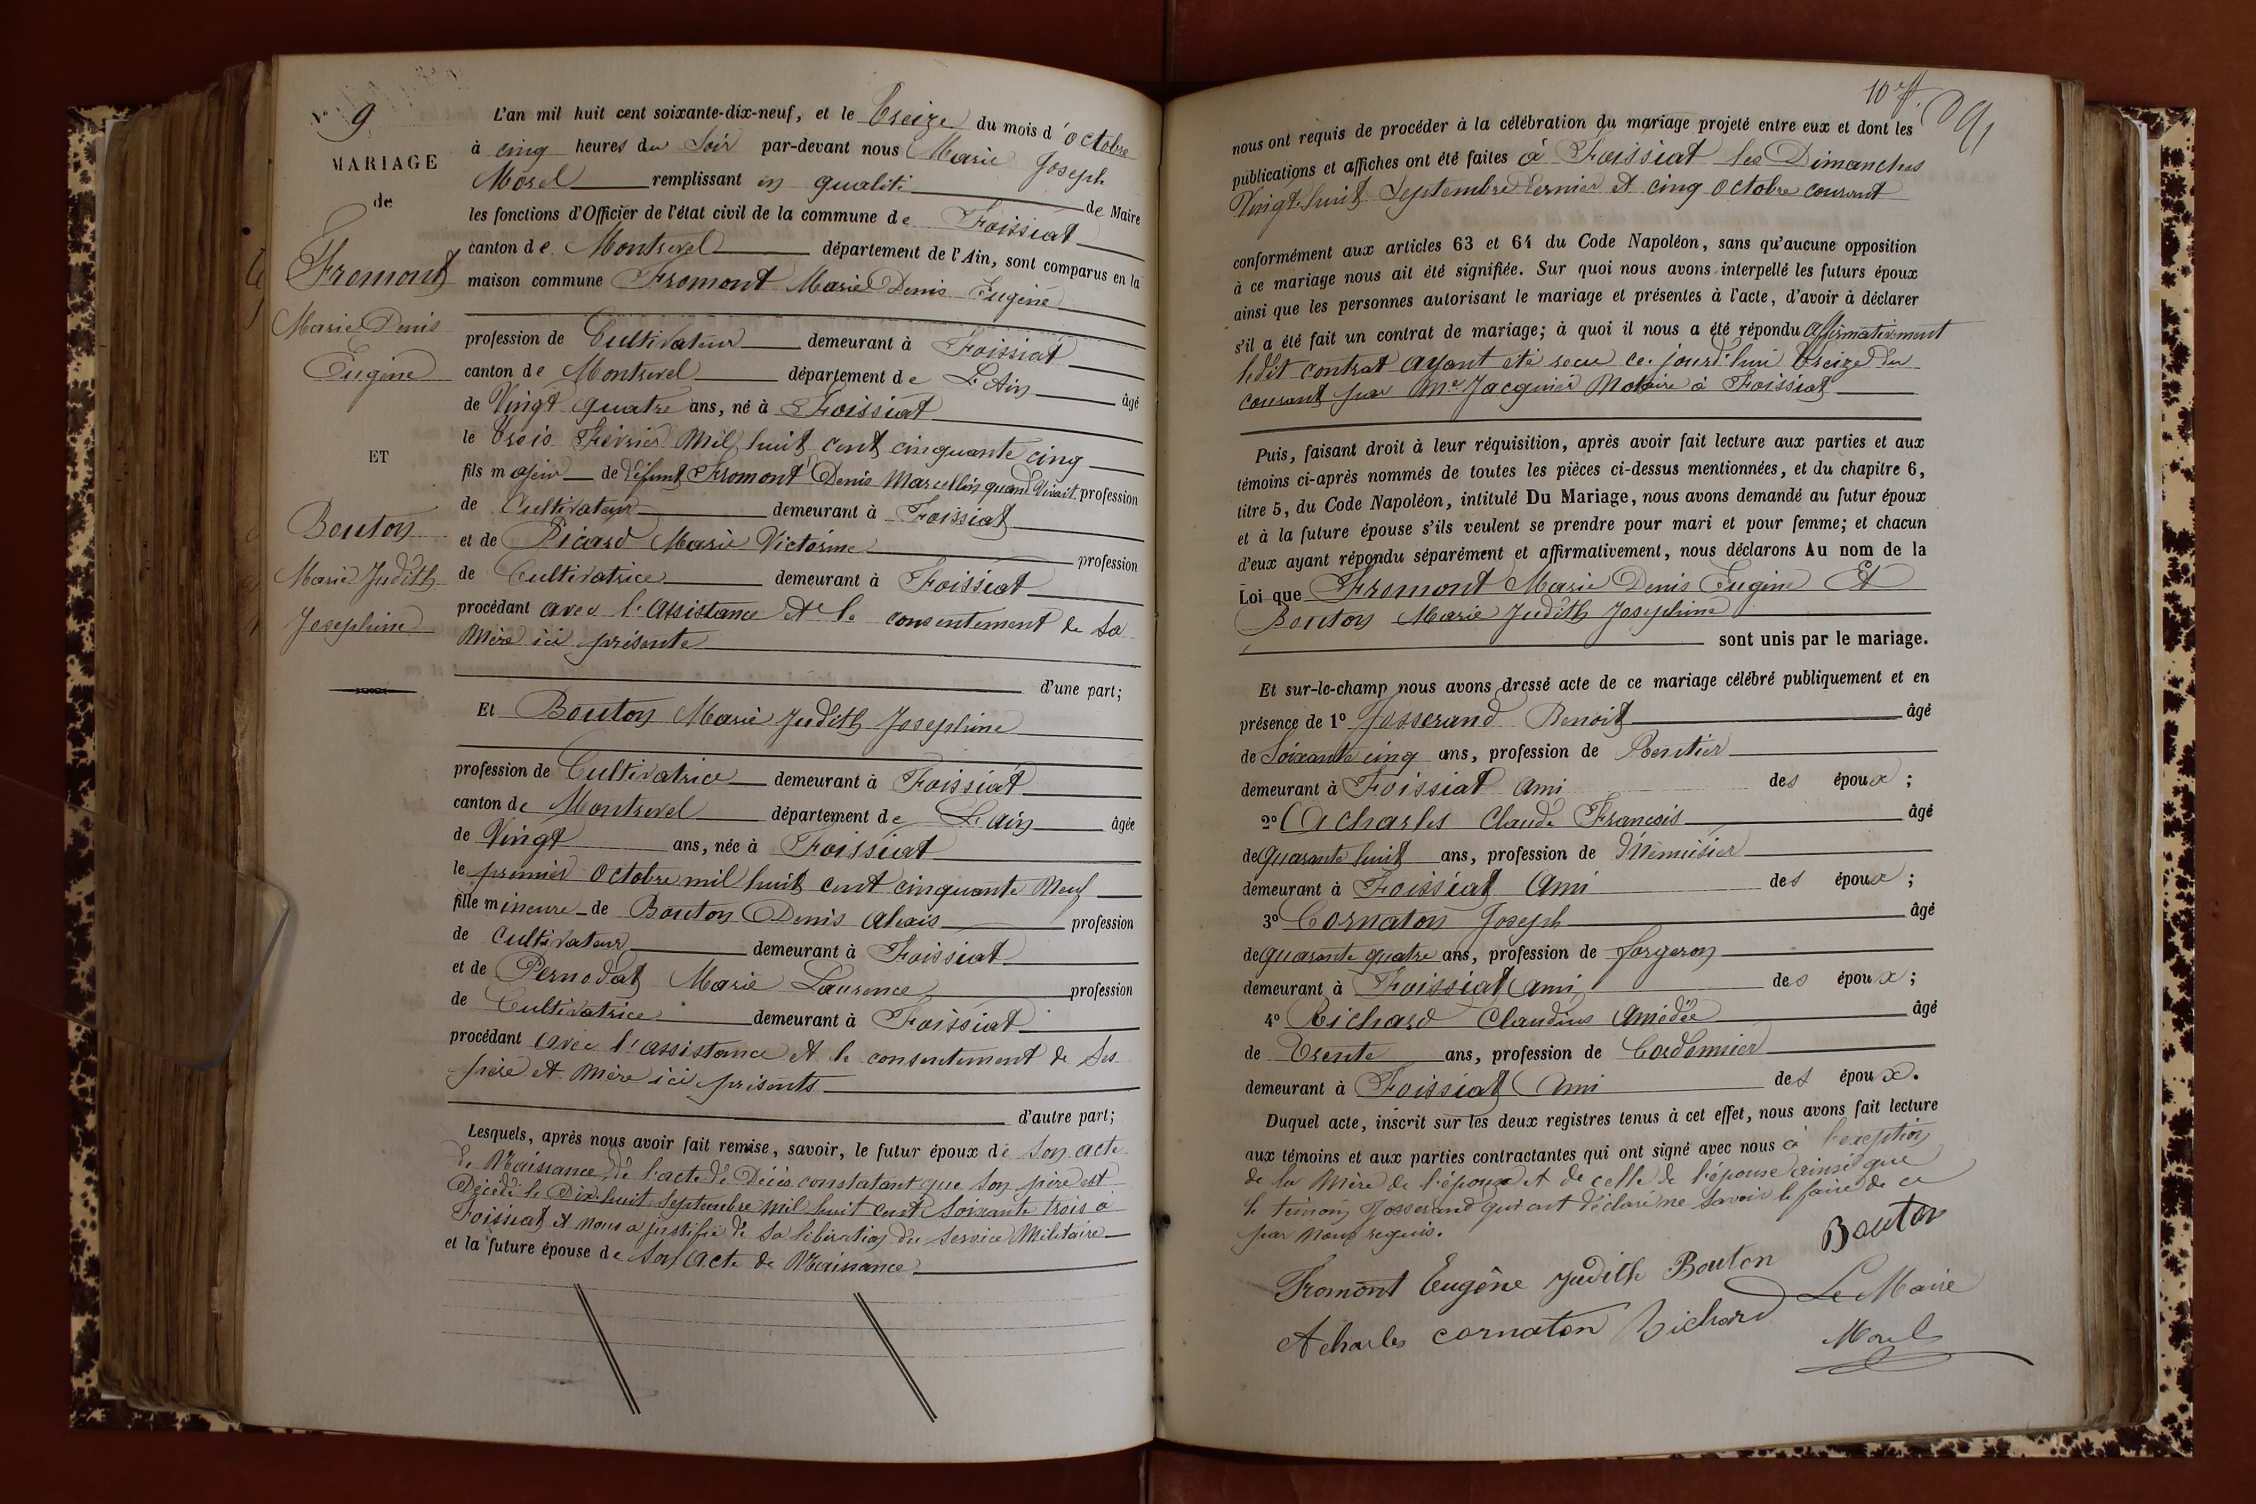 N° 9
MARIAGE
de
Fromont
Marie Denis
Eugène
ET
Bouton
Marie Judith
Josephine
L'an mil huit cent soixante-dix-neuf, et le treize du mois d'octobre
à cinq heures du Soir par-devant nous Marie Joseph
Morel remplissant en qualité de Maire
les fonctions d'Officier de l'état civil de la commune de Foissiat
canton de Montrevel département de l'Ain, sont comparus en la
maison commune Fromont Marie Denis Eugène
profession de Cultivateur demeurant à Foissiat
canton de Montrevel département de L'Ain âgé
de Vingt quatre ans, né à Foissiat
le trois Février mil huit cent cinquante cinq
fils majeur de défunt Fromont Denis Marcellin quand vivait profession
de Cultivateur demeurant à Foissiat
et de Picard Marie Victorine profession
de Cultivatrice demeurant à Foissiat
procédant avec l'assistance et le consentement de sa
Mère ici présente
d'une part;
Et Bouton Marie Judith Josephine
profession de Cultivatrice demeurant à Foissiat
canton de Montrevel département de L'ain âgée
de Vingt ans, née à Foissiat
le premier octobre mil huit cent cinquante Neuf
fille mineure de Bouton Denis Alexis profession
de Cultivateur demeurant à Foissiat
et de Pernodat Marie Laurence profession
de Cultivatrice demeurant à Foissiat
procédant avec l'assistance et le consentement de ses
père et mère ici présents
d'autre part;
Lesquels, après nous avoir fait remise, savoir, le futur époux de son acte
de Naissance de l'acte de Décès constatant que son père est
Décédé le Dix-huit septembre mil huit cent soixante trois à
Foissiat et nous a justifié de sa libération du service Militaire
et la future épouse de son acte de Naissance
10 ff.
nous ont requis de procéder à la célébration du mariage projeté entre eux et dont les
publications et affiches ont été faites à Foissiat les Dimanches
Vingt-huit Septembre dernier et cinq octobre courant
conformément aux articles 63 et 64 du Code Napoléon, sans qu'aucune opposition
à ce mariage nous ait été signifiée. Sur quoi nous avons interpellé les futurs époux
ainsi que les personnes autorisant le mariage et présentes à l'acte, d'avoir à déclarer
s'il a été fait un contrat de mariage; à quoi il nous a été répondu affirmativement
ledit contrat ayant été recu ce jourd'hui treize du
courant par Me Jacquier Notaire à Foissiat
Puis, faisant droit à leur réquisition, après avoir fait lecture aux parties et aux
témoins ci-après nommés de toutes les pièces ci-dessus mentionnées, et du chapitre 6,
titre 5, du Code Napoléon, intitulé Du Mariage, nous avons demandé au futur époux
et à la future épouse s'ils veulent se prendre pour mari et pour femme; et chacun
d'eux ayant répondu séparément et affirmativement, nous déclarons Au nom de la
Loi que Fromont Marie Denis Eugène Et
Bouton Marie Judith Josephine
sont unis par le mariage.
Et sur-le-champ nous avons dressé acte de ce mariage célébré publiquement et en
présence de 1° Josserand Benoit âgé
de Soixante cinq ans, profession de Rentier
demeurant à Foissiat ami des époux;
2° Acharles Claude Francois âgé
de quarante huit ans, profession de Menuisier
demeurant à Foissiat Ami des époux;
3° Cornaton Joseph âgé
de quarante quatre ans, profession de forgeron
demeurant à Foissiat ami des époux;
4° Richard Claudius Amédée âgé
de trente ans, profession de Cordonnier
demeurant à Foissiat Ami des époux.
Duquel acte, inscrit sur les deux registres tenus à cet effet, nous avons fait lecture
aux témoins et aux parties contractantes qui ont signé avec nous à l'exception
de la mère de l'époux et de celle de l'épouse ainsi que
le témoin Josserand qui ont déclaré ne savoir le faire de ce
par nous requis.
Bouton
Fromont Eugène Judith Bouton
Le Maire
Acharles cornaton Richard
Morel